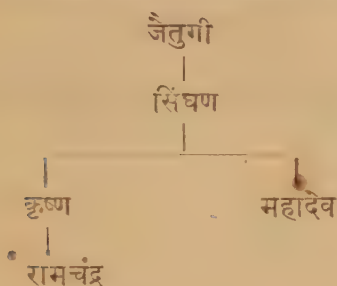 जैतुगी
सिंघण
कृष्ण महादेव
रामचंद्र